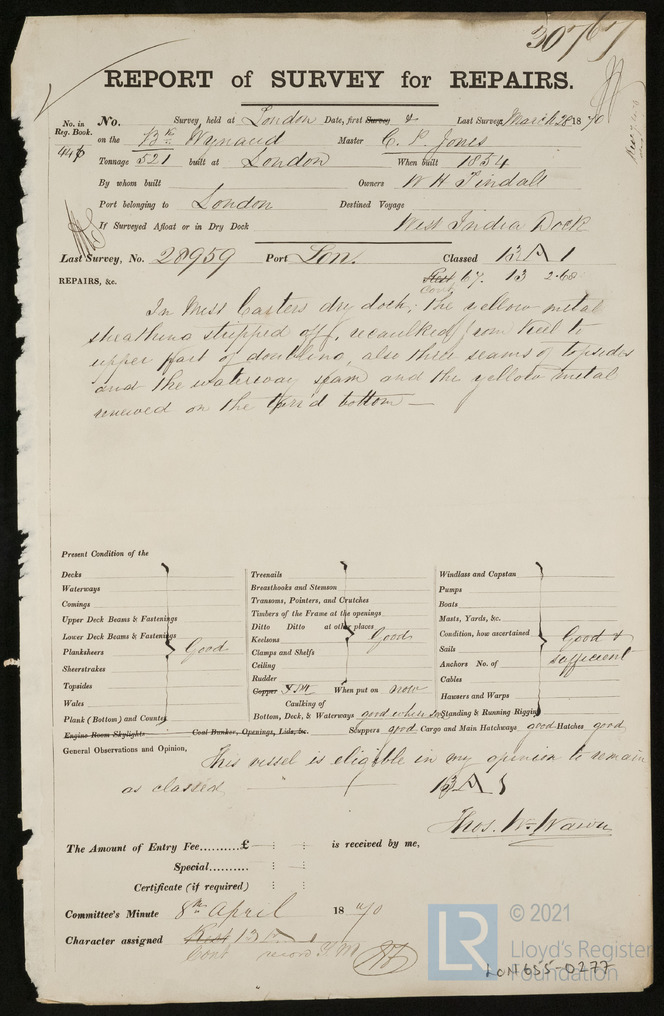 30767
REPORT of SURVEY for REPAIRS.
No. in Reg. Book. No. Survey, held at London Date, first Survey & Last Survey March 28 1870
446 on the Bk Wynaud Master C. P. Jones
Tonnage 521 built at London When built 1854
By whom built Owners W H Tindall
Port belonging to London Destined Voyage
If Surveyed Afloat or in Dry Dock West India Dock
Last Survey, No. 28959 Port Lon. Classed 13 A 1
REPAIRS, &c. Rest 67. 13 2.68
Cont
In Mess Casters dry dock; the yellow metal
sheathing stripped off, recaulked from keel to
upper part of doubling, also three seams of topsides
and the waterway seam and the yellow metal
renewed on the bottom
Present Condition of the
Decks
Waterways
Comings
Upper Deck Beams & Fastenings
Lower Deck Beams & Fastenings
Planksheers Good
Sheerstrakes
Topsides
Wales
Plank (Bottom) and Counter
Engine Room Skylights Coal Bunker, Openings, Lids, &c.
Treenails
Breasthooks and Stemson
Transoms, Pointers, and Crutches
Timbers of the Frame at the openings
Ditto Ditto at other places
Keelsons Good
Clamps and Shelfs
Ceiling
Rudder
Copper YM When put on now
Caulking of
Bottom, Deck, & Waterways good where seen
Windlass and Capstan
Pumps
Boats
Masts, Yards, &c.
Condition, how ascertained Good &
Sails sufficient
Anchors No. of
Cables
Hawsers and Warps
Standing & Running Rigging
Scuppers good Cargo and Main Hatchways good Hatches good
General Observations and Opinion, This vessel is eligible in my opinion to remain
as classed 13 A 1
Thos. Wm. Wawn
The Amount of Entry Fee..........£ : : is received by me,
Special.......... : :
Certificate (if required) : :
Committee's Minute 8th April 1870
Character assigned Rest 13 A 1
Cont record
LR © 2021
Lloyd's Register
Foundation
LON655-0277